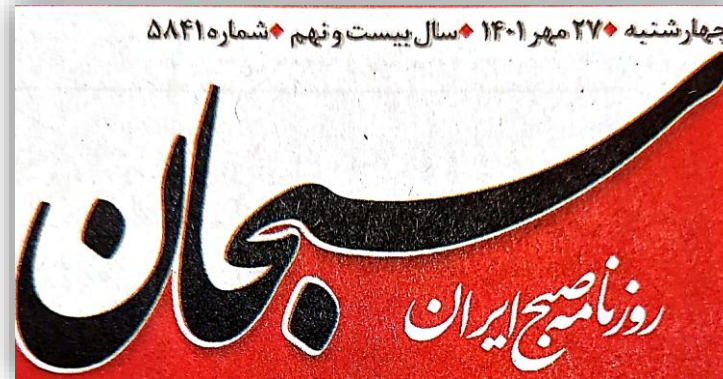 چهارشنبه ◆ ۲۷ مهر ۱۴۰۱ ◆ سال بیست و نهم ◆ شماره ۵۸۴۱
سبحان
روزنامه صبح ایران